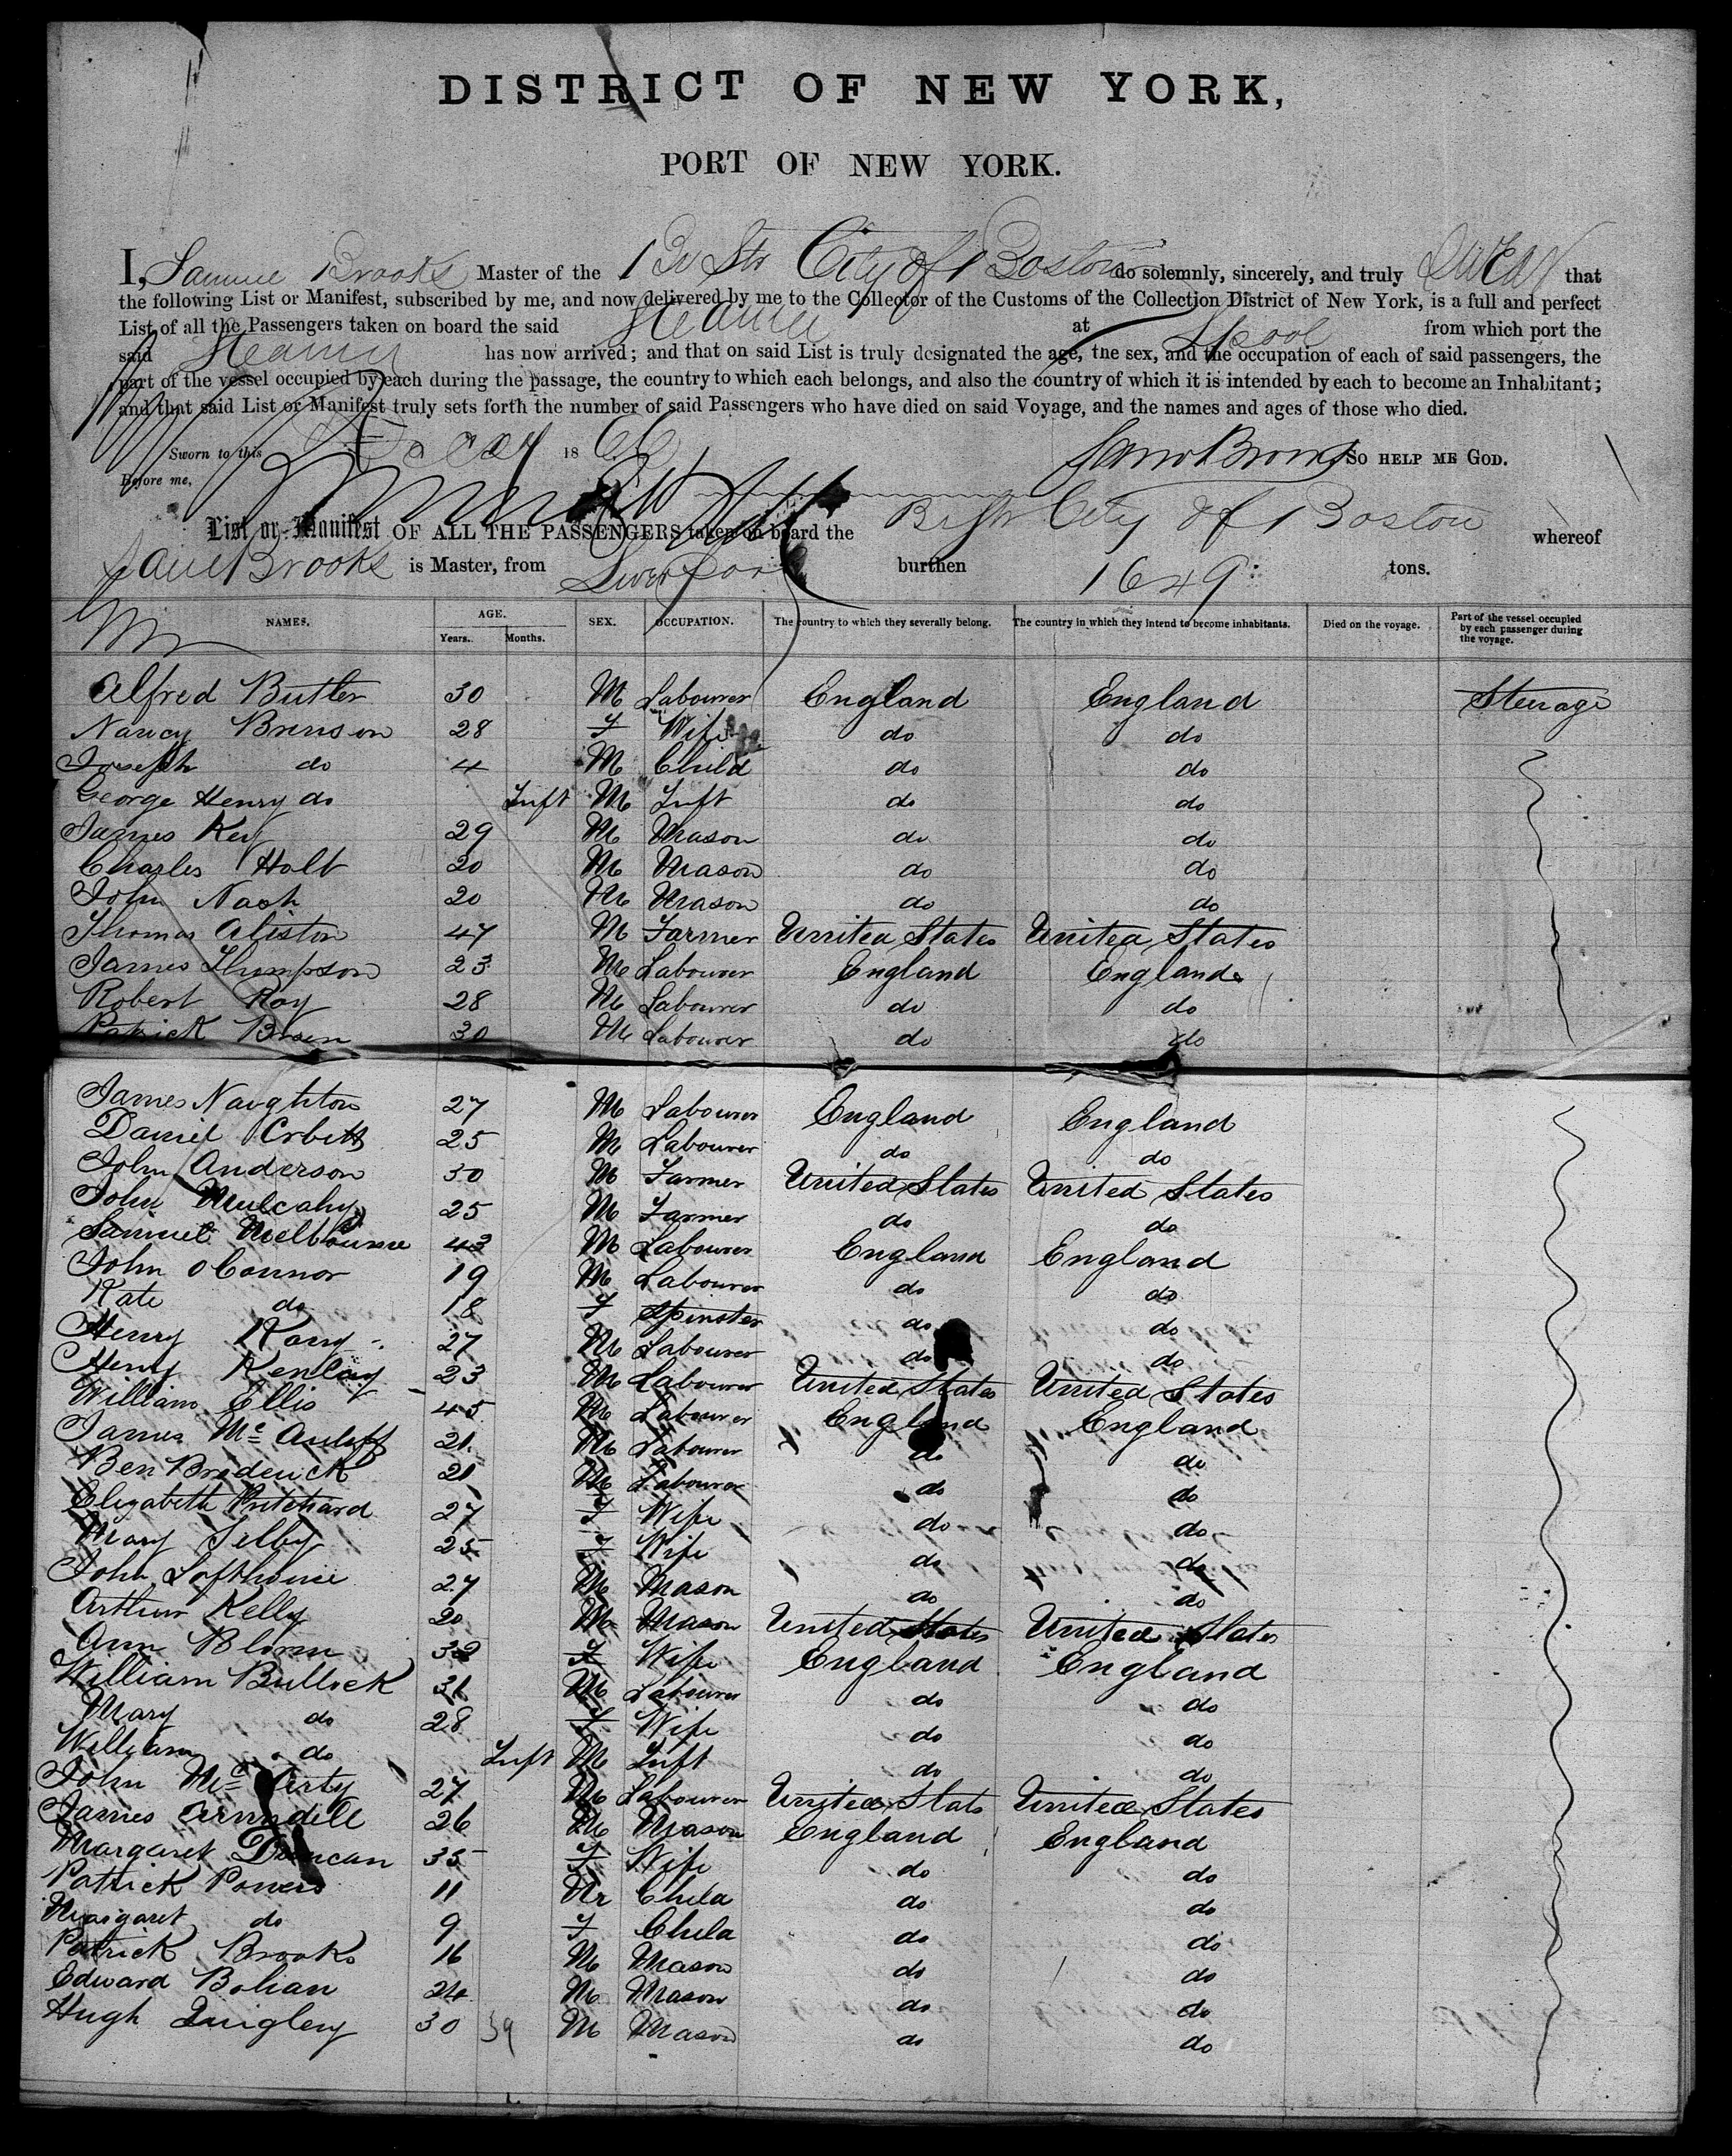 DISTRICT OF NEW YORK,
PORT OF NEW YORK.
I, Samuel Brooks Master of the Br Str City of Boston do solemnly, sincerely, and truly swear that
the following List or Manifest, subscribed by me, and now delivered by me to the Collector of the Customs of the Collection District of New York, is a full and perfect
List of all the Passengers taken on board the said Steamer at Lpool from which port the
said Steamer has now arrived; and that on said List is truly designated the age, the sex, and the occupation of each of said passengers, the
part of the vessel occupied by each during the passage, the country to which each belongs, and also the country of which it is intended by each to become an Inhabitant;
and that said List or Manifest truly sets forth the number of said Passengers who have died on said Voyage, and the names and ages of those who died.
Sworn to this 1866 Saml Brooks SO HELP ME GOD.
Before me,
List or Manifest OF ALL THE PASSENGERS taken on board the Br Str City of Boston whereof
Saml Brooks is Master, from Liverpool burthen 1649 tons.
NAMES. AGE. Years. Months. SEX. OCCUPATION. The country to which they severally belong. The country in which they intend to become inhabitants. Died on the voyage. Part of the vessel occupied by each passenger during the voyage.
Alfred Butler 30 M Labourer England England Steerage
Nancy Brenson 28 F Wife do do
Joseph do 4 M Child do do
George Henry do Inft M Inft do do
James Key 29 M Mason do do
Charles Holt 20 M Mason do do
John Nash 20 M Mason do do
Thomas Aliston 47 M Farmer United States United States
James Thompson 23 M Labourer England England
Robert Roy 28 M Labourer do do
Patrick 30 M Labourer do do
James Naughton 27 M Labourer England England
Daniel 25 M Labourer do do
John Anderson 30 M Farmer United States United States
John Mulcahy 25 M Farmer do do
Samuel Melbourne 43 M Labourer England England
John O Connor 19 M Labourer do do
Kate do 18 F Spinster do do
Henry 27 M Labourer do do
Henry 23 M Labourer United States United States
William Ellis 45 M Labourer England England
James Mc Auliff 21 M Labourer do do
Ben Broderick 21 M Labourer do do
Elizabeth Pritchard 27 F Wife do do
Mary Selby 25 F Wife do do
John Lofthouse 27 M Mason do do
Arthur Kelly 20 M Mason United States United States
Ann 32 F Wife England England
William Bullock 31 M Labourer do do
Mary do 28 F Wife do do
William do Inft M Inft do do
John McCarty 27 M Labourer United States United States
James Arundell 26 M Mason England England
Margaret Duncan 35 F Wife do do
Patrick Powers 11 M Child do do
Margaret do 9 F Child do do
Patrick Brooks 16 M Mason do do
Edward Bolian 24 M Mason do do
Hugh Quigley 30 39 M Mason do do